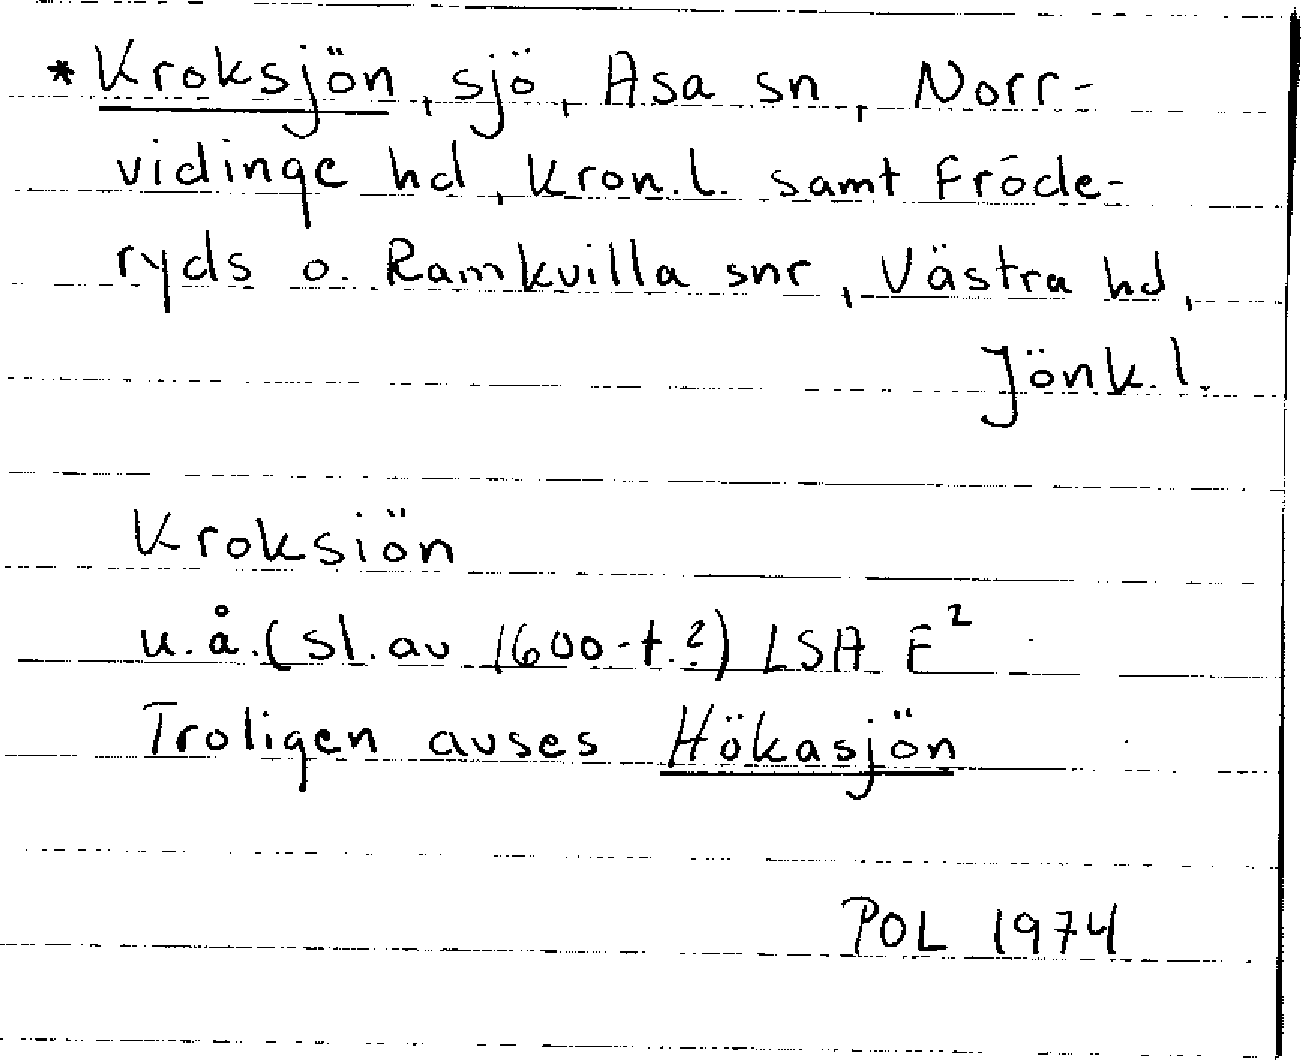 *Kroksjön, sjö, Asa sn, Norr-
vidinge hd, Kron.l. samt Fröde-
ryds o. Ramkvilla snr, Västra hd,
Jönk.l.
Kroksiön
u.å.(sl.av 1600-t.?) LSA F²
Troligen avses Hökasjön
POL 1974